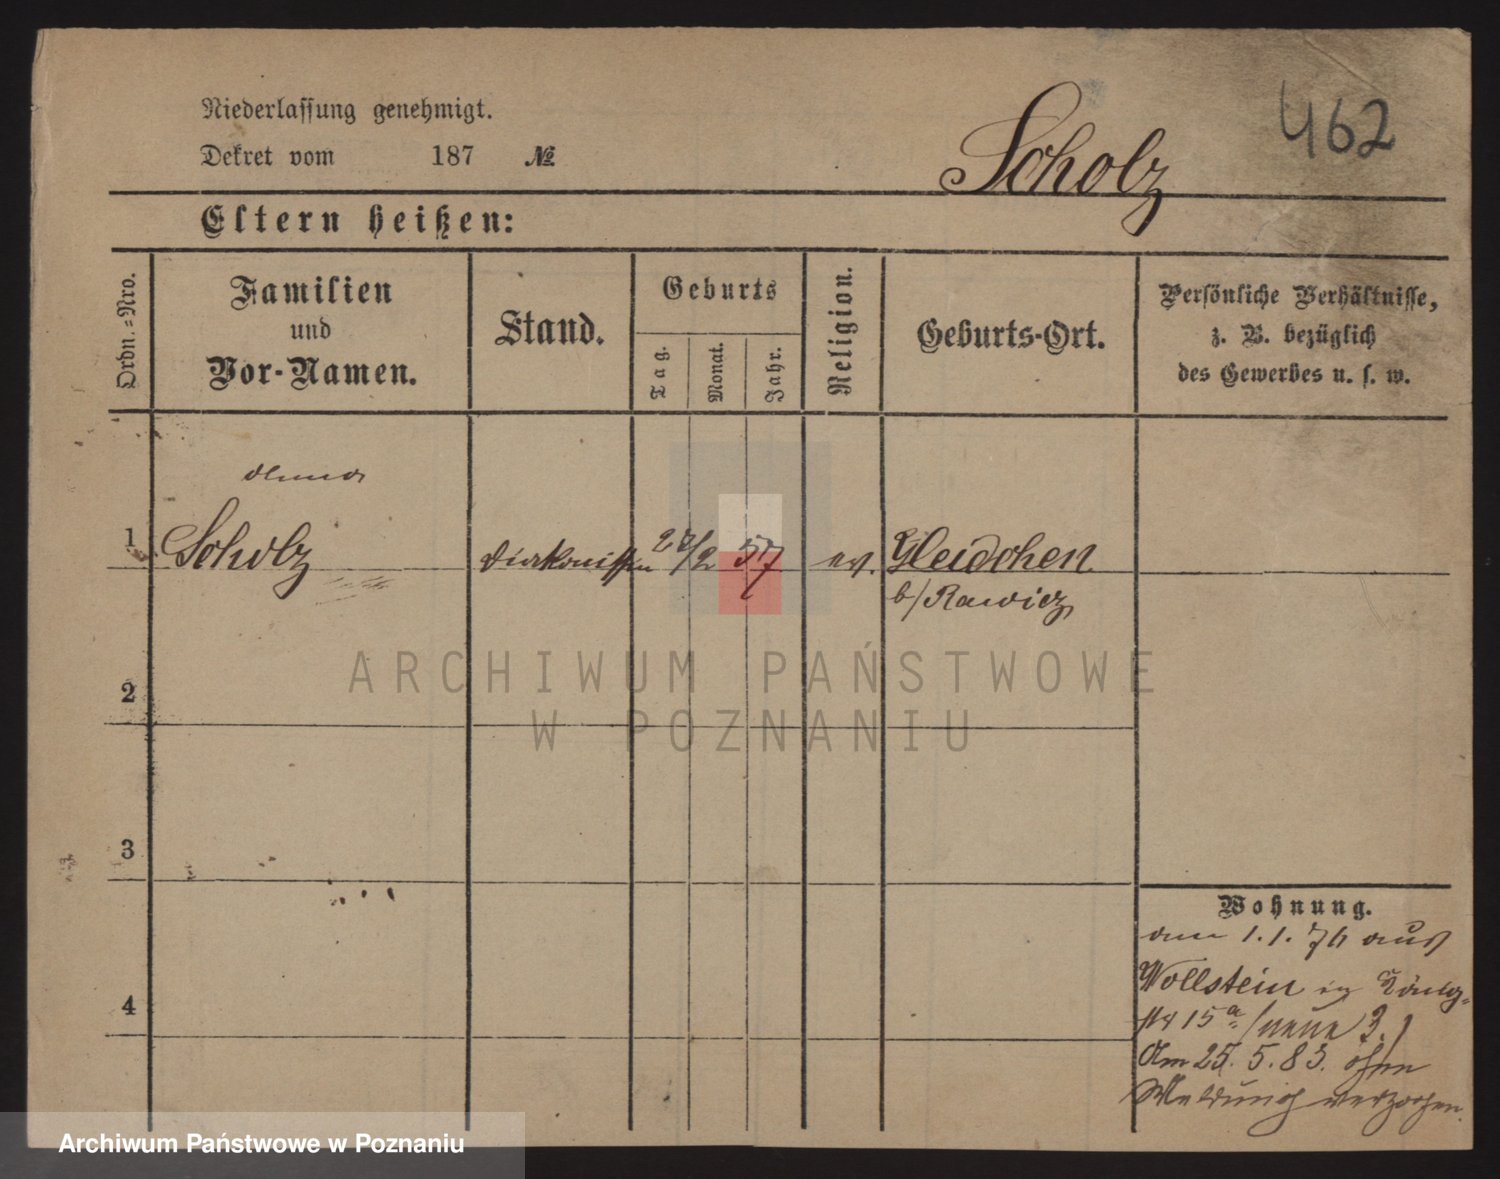 Niederlassung genehmigt.
462
Dekret vom 187 №
Scholz
Eltern heißen:
Ordn.=Nro.
Familien
und
Vor-Namen.
Stand.
Geburts
Tag.
Monat.
Jahr.
Religion.
Geburts-Ort.
Persönliche Verhältnisse,
z. B. bezüglich
des Gewerbes u. s. w.
1
Scholz
Diakonissin
27/2 57
ev.
Gleidchen
b/ Rawicz
2
3
4
Wohnung.
am 1.1.76 aus
Wollstein in König-
str 15a /neue 3.)
Am 25.5.83. ohne
Meldung verzogen.
ARCHIWUM PAŃSTWOWE
W POZNANIU
Archiwum Państwowe w Poznaniu